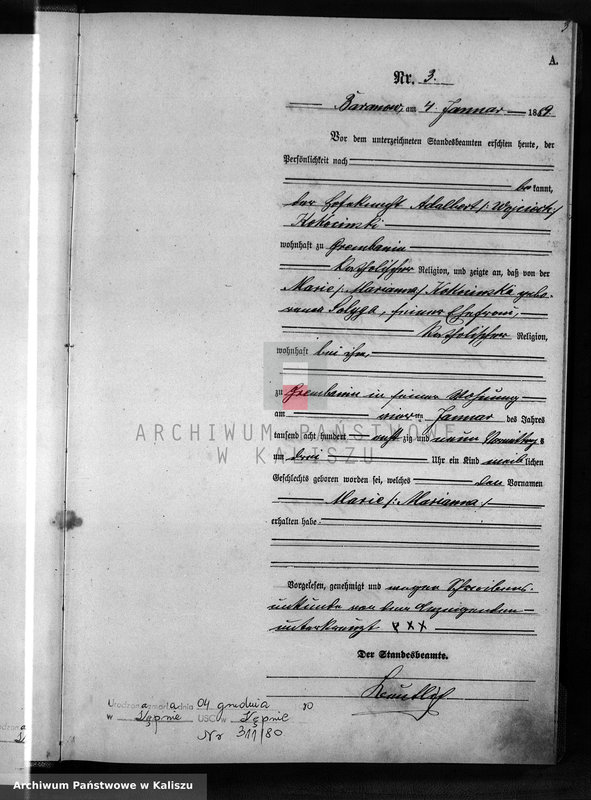 3
A.
Nr. 3.
Baranow, am 4. Januar 1889
Vor dem unterzeichneten Standesbeamten erschien heute, der
Persönlichkeit nach
bekannt,
der Adalbert /: Wojciech /
Kokocinski
wohnhaft zu Grembanin
katholischer Religion, und zeigte an, daß von der
Marie /: Marianna / Kokocinska gebo-
rene seiner Ehefrau,
katholischer Religion,
wohnhaft bei ihm,
zu Grembanin in seiner Wohnung
am vier ten Januar des Jahres
tausend acht hundert acht zig und neun Vormittags
um drei Uhr ein Kind weib lichen
Geschlechts geboren worden sei, welches den Vornamen
Marie /: Marianna /
erhalten habe.
Vorgelesen, genehmigt und wegen Schreibens-
unkunde von dem Anzeigenden
unterkreuzt XXX
Der Standesbeamte.
zmarła dnia 04 grudnia 80
w Słupnie USC w Słupnie
Nr 311/80
ARCHIWUM PAŃSTWOWE
W KALISZU
Archiwum Państwowe w Kaliszu